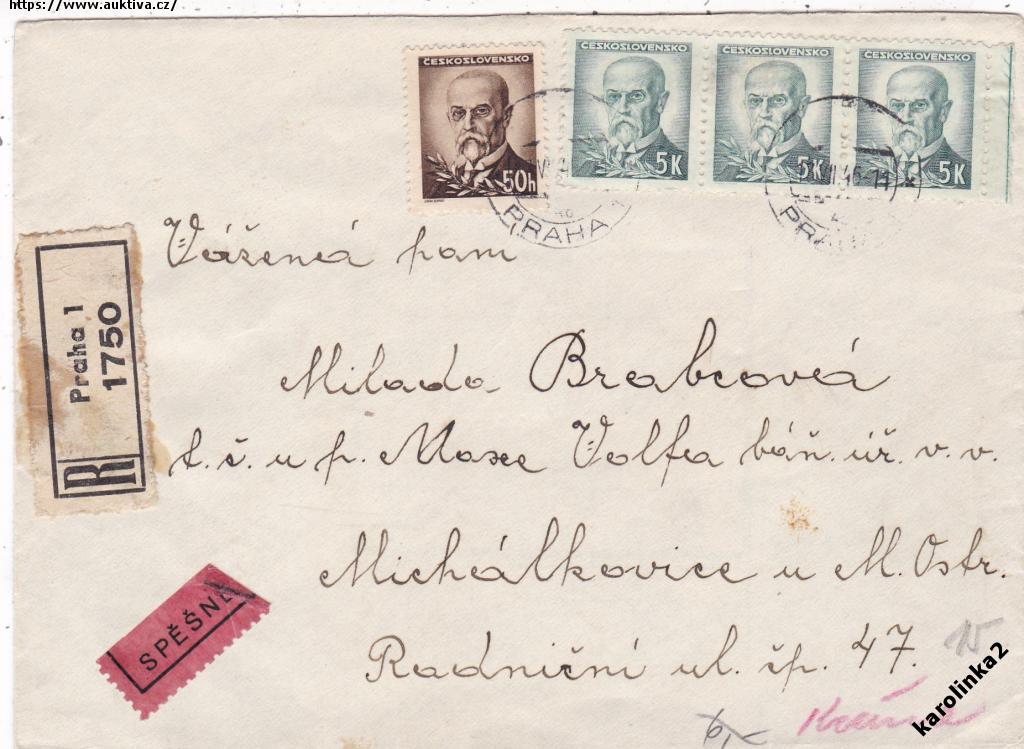 https://www.auktiva.cz/
ČESKOSLOVENSKO
50h
ČESKOSLOVENSKO
5K
ČESKOSLOVENSKO
5K
ČESKOSLOVENSKO
5K
PRAHA 1
Vážená paní
Praha 1
1750
R
Milada Brabcová
t.č. u p. Maxe Volfa báň. úř. v. v.
Michálkovice u M. Ostr.
Radniční ul. čp. 47.
SPĚŠNĚ
karolinka2